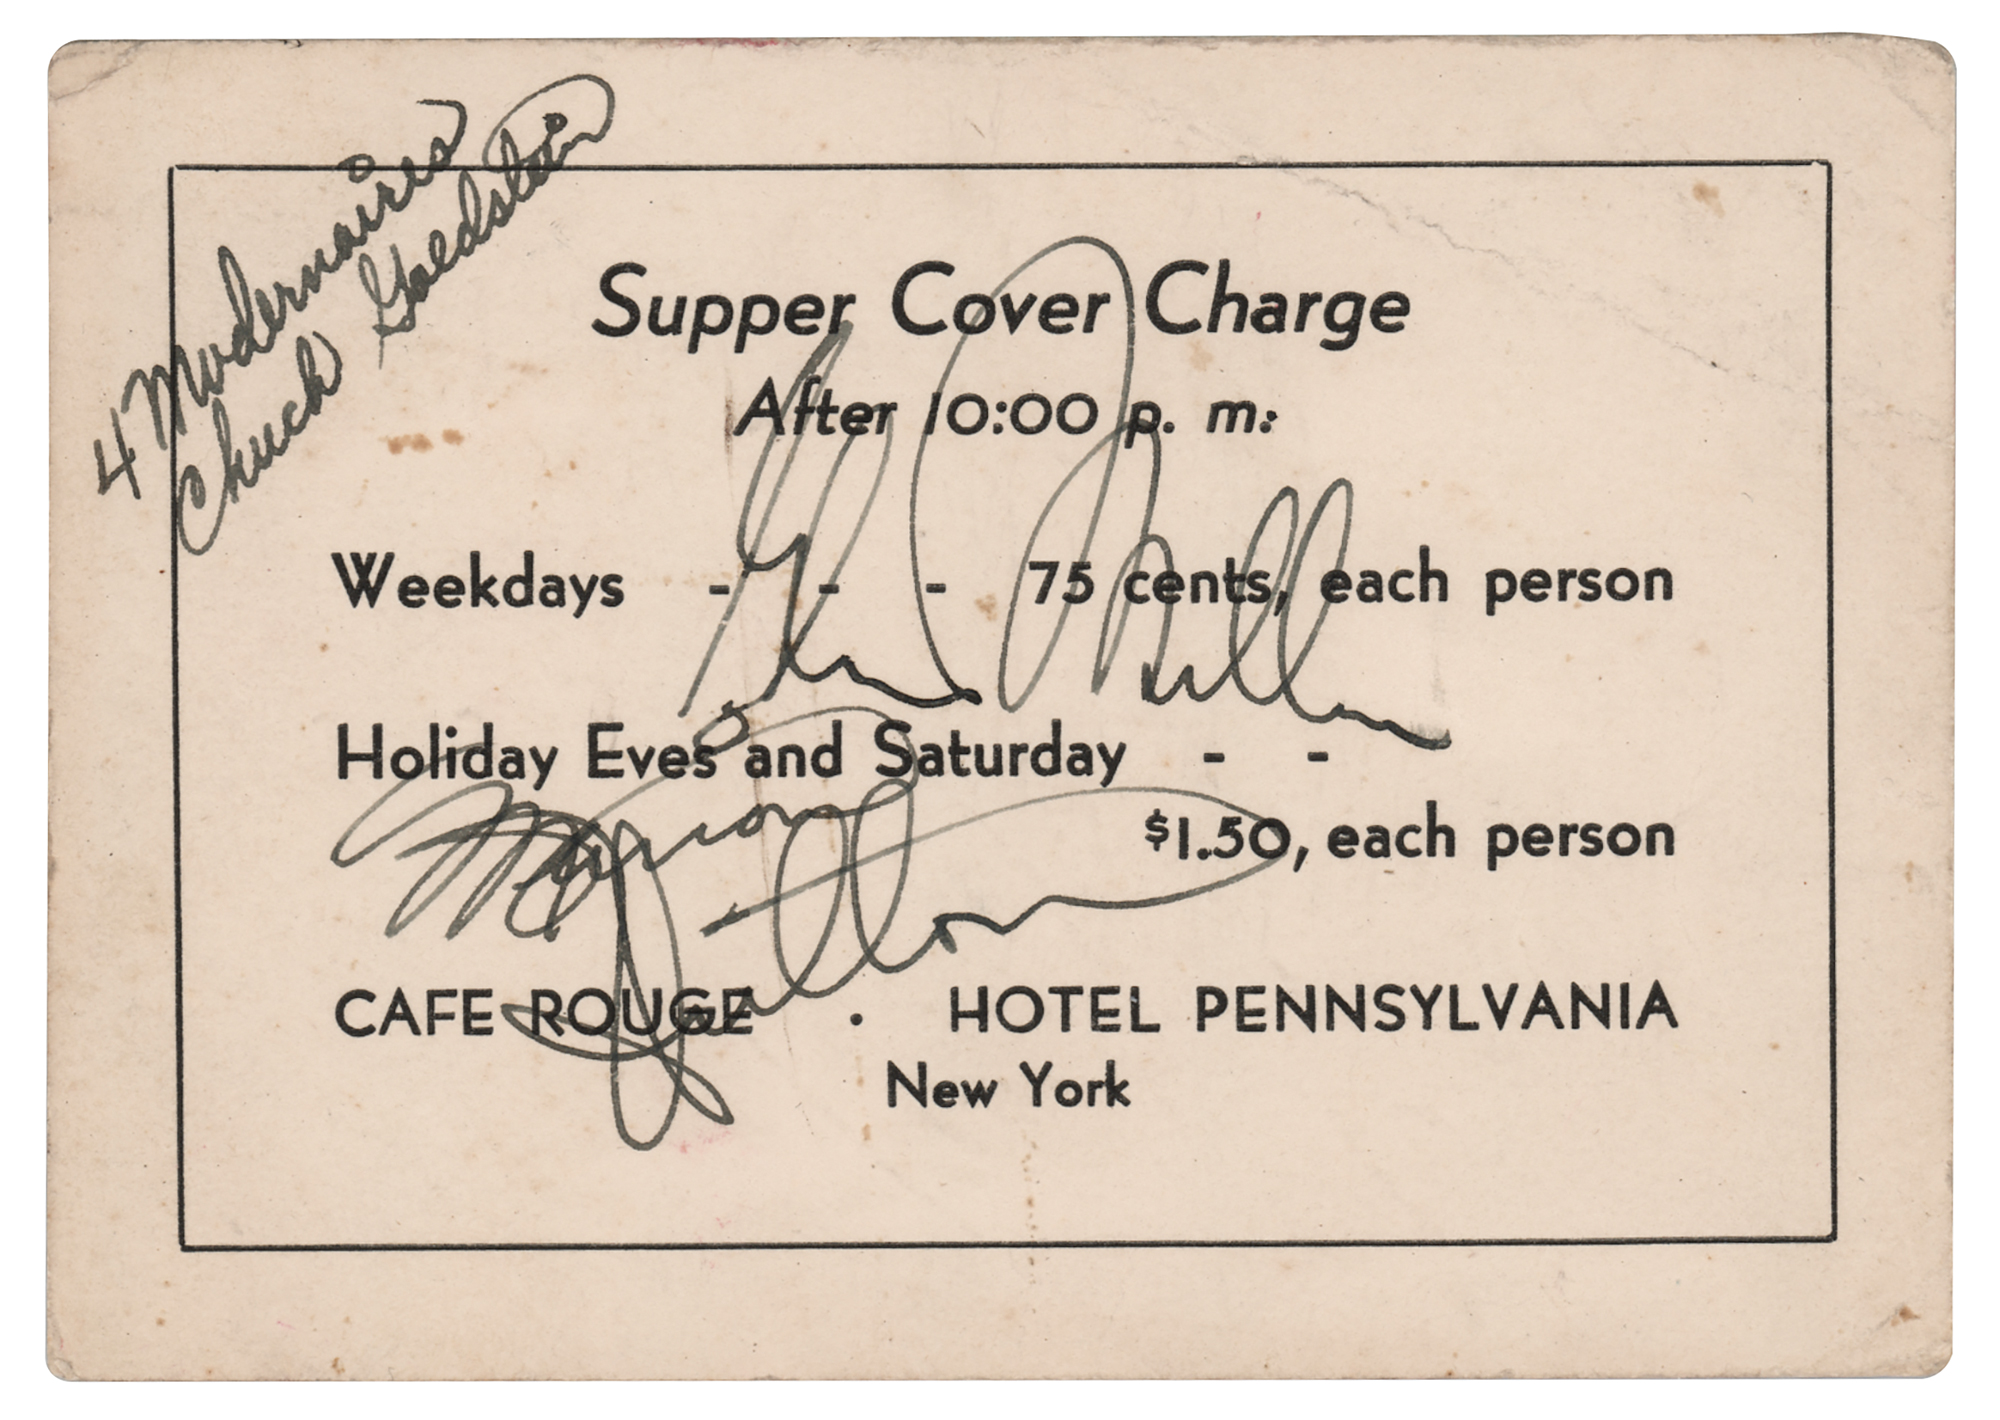 4 Modernaires
Chuck Goldstein
Supper Cover Charge
After 10:00 p. m:
Weekdays - - - 75 cents, each person
Glenn Miller
Holiday Eves and Saturday - -
$1.50, each person
Marion
Hutton
CAFE ROUGE . HOTEL PENNSYLVANIA
New York